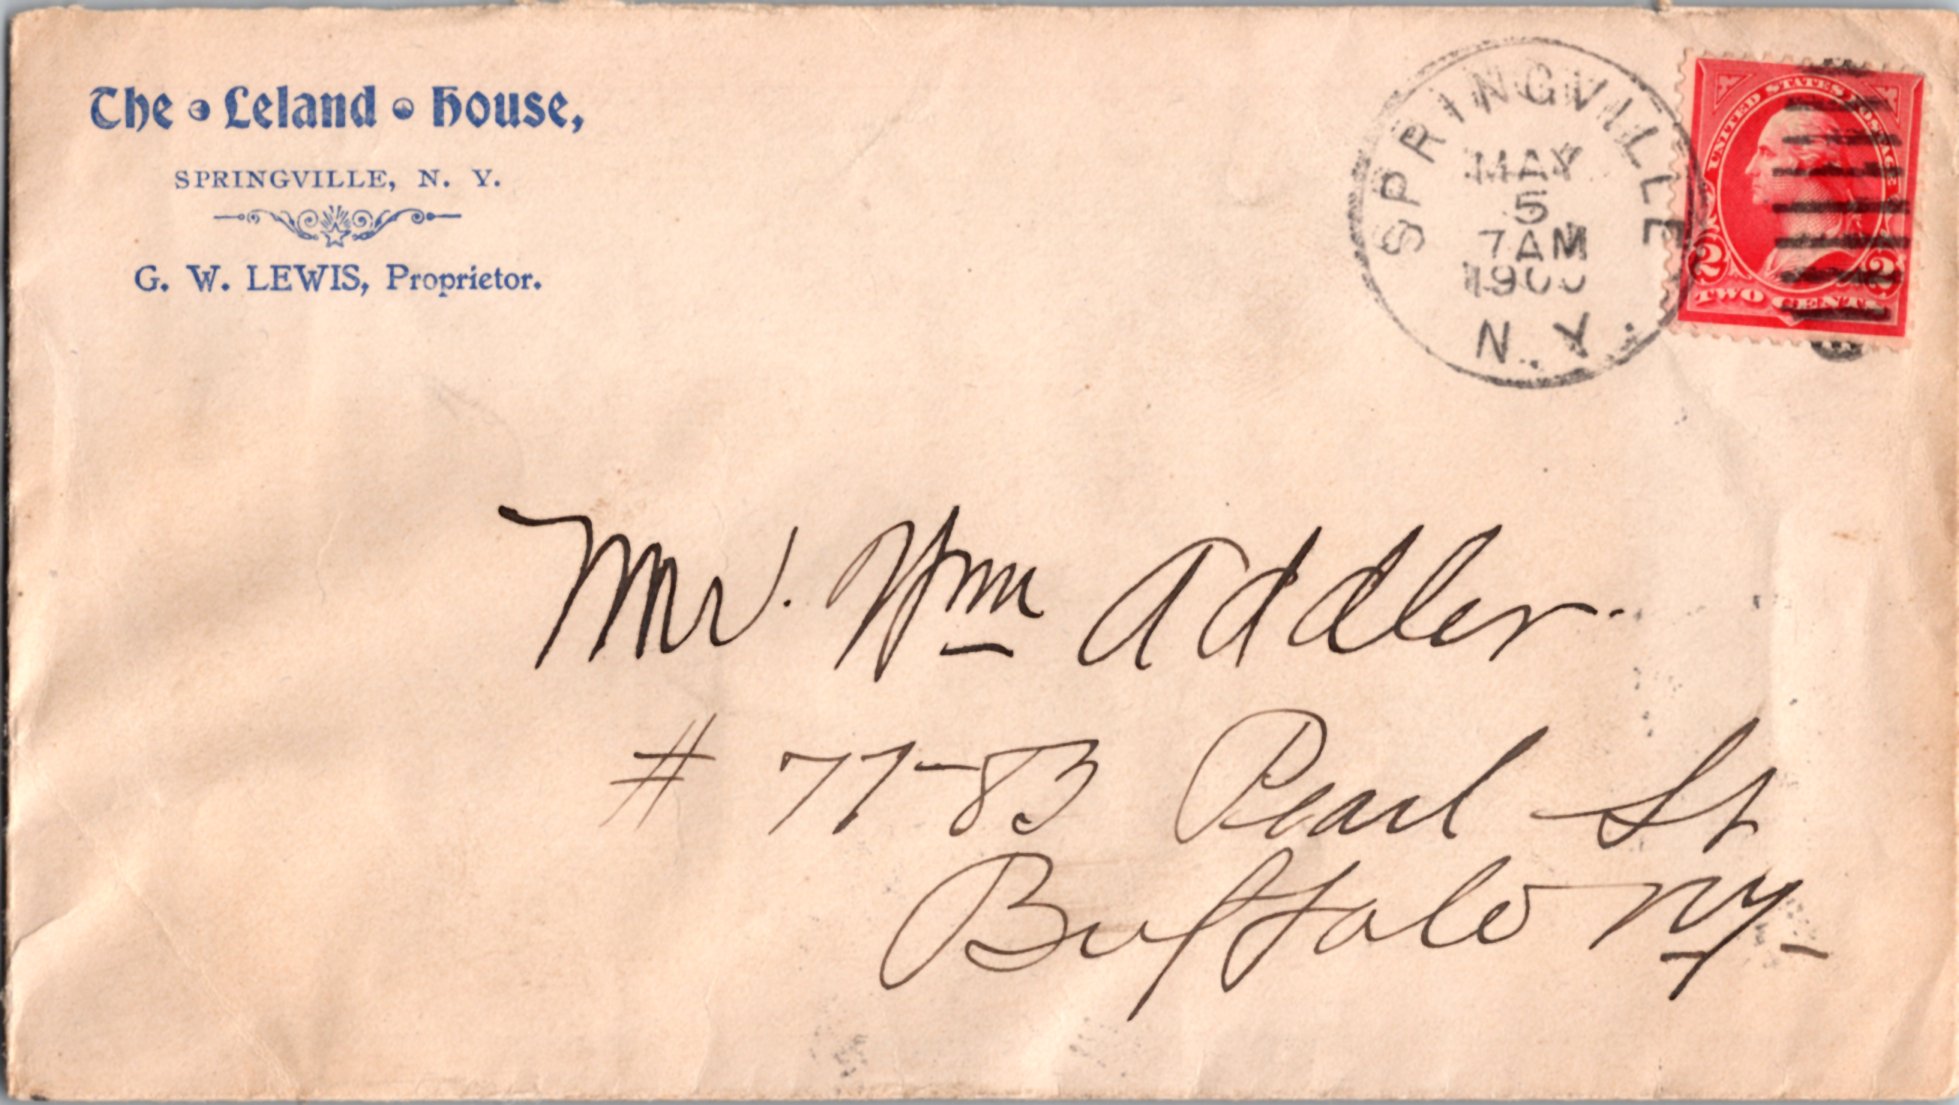 The Leland House,
SPRINGVILLE, N. Y.
G. W. LEWIS, Proprietor.
SPRINGVILLE
MAY
5
7AM
1900
N.Y.
UNITED STATES POSTAGE
2 2
TWO CENTS
Mr. Wm Addler.
# 77-83 Pearl St
Buffalo NY-